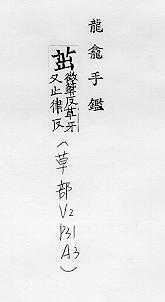 龍龕手鑑
茁
徵筆反草牙
又止律反
(草部
V2
P31
A3)